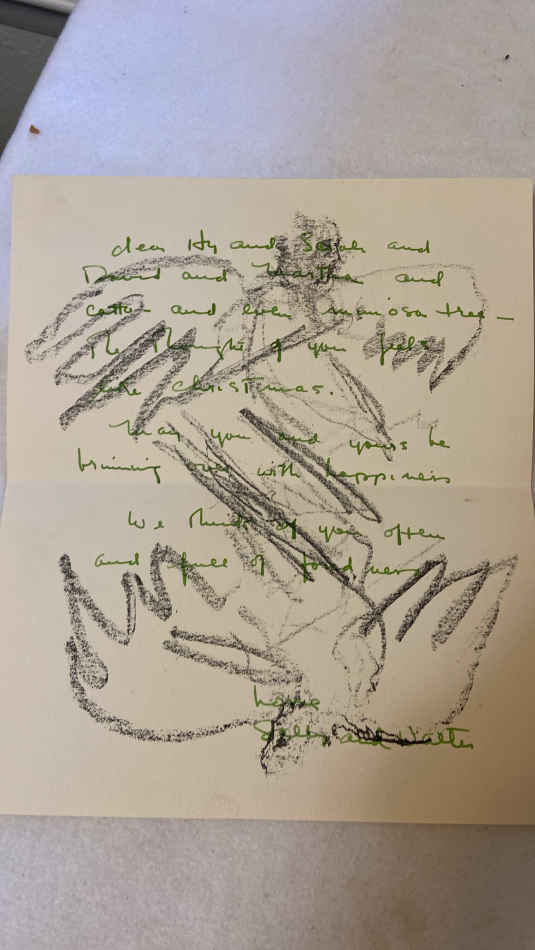 dear Hy and Sarah and
David and Martha and
and even mimosa tree —
The thought of you feels
like christmas.
May you and yours be
brimming over with happiness
We think of you often
and full of fondness
love
Sally and Walter